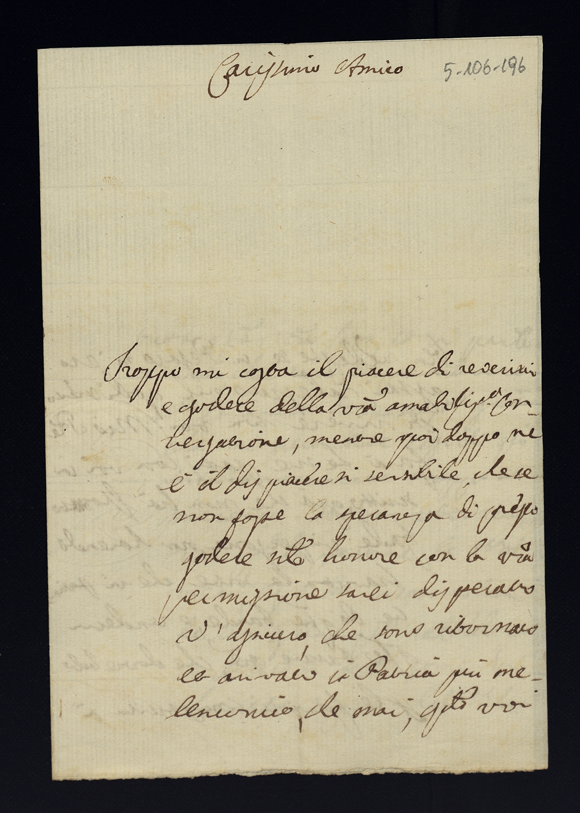 Carissimo Amico
5-106-196
Troppo mi costa il piacere di revedervi
e godere della vrã amabilissma Con-
versazione, mentre poi doppo ne
è il dispiacere si sensibile, che se
non fosse la speranza di presto
godere sto honore con la vrã
permissione sarei disperato
v' assicuro, che sono ritornato
et arivato in Patria più me-
lenconico, che mai, qsto voi